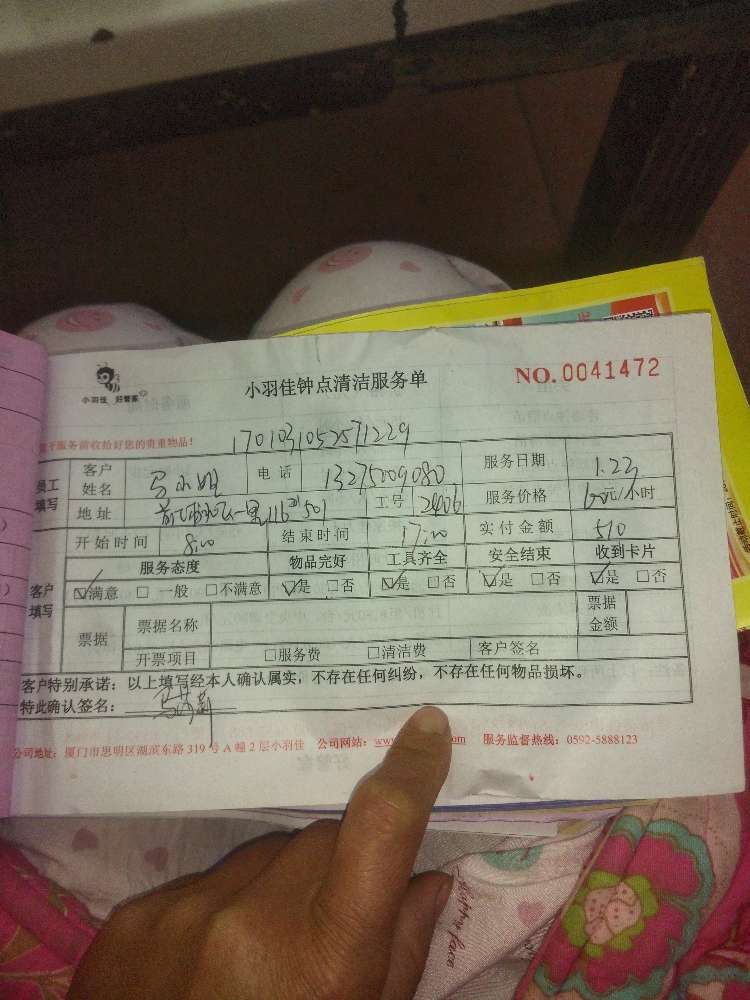 小羽佳 好管家
小羽佳钟点清洁服务单
NO. 0041472
服务前收拾好您的贵重物品！
1701031052571229
员工填写 客户姓名 小姐 电话 13275009080 服务日期 1.23
地址 116 501 工号 2406 服务价格 60元/小时
开始时间 8:00 结束时间 17:00 实付金额 510
客户填写 服务态度 物品完好 工具齐全 安全结束 收到卡片
☑满意 □ 一般 □不满意 ☑是 □否 ☑是 □否 ☑是 □否 ☑是 □否
票据 票据名称 票据金额
开票项目 □服务费 □清洁费 客户签名
客户特别承诺：以上填写经本人确认属实，不存在任何纠纷，不存在任何物品损坏。
特此确认签名：
公司地址：厦门市思明区湖滨东路 319 号 A 幢 2 层小羽佳 公司网站：www. .com 服务监督热线：0592-5888123